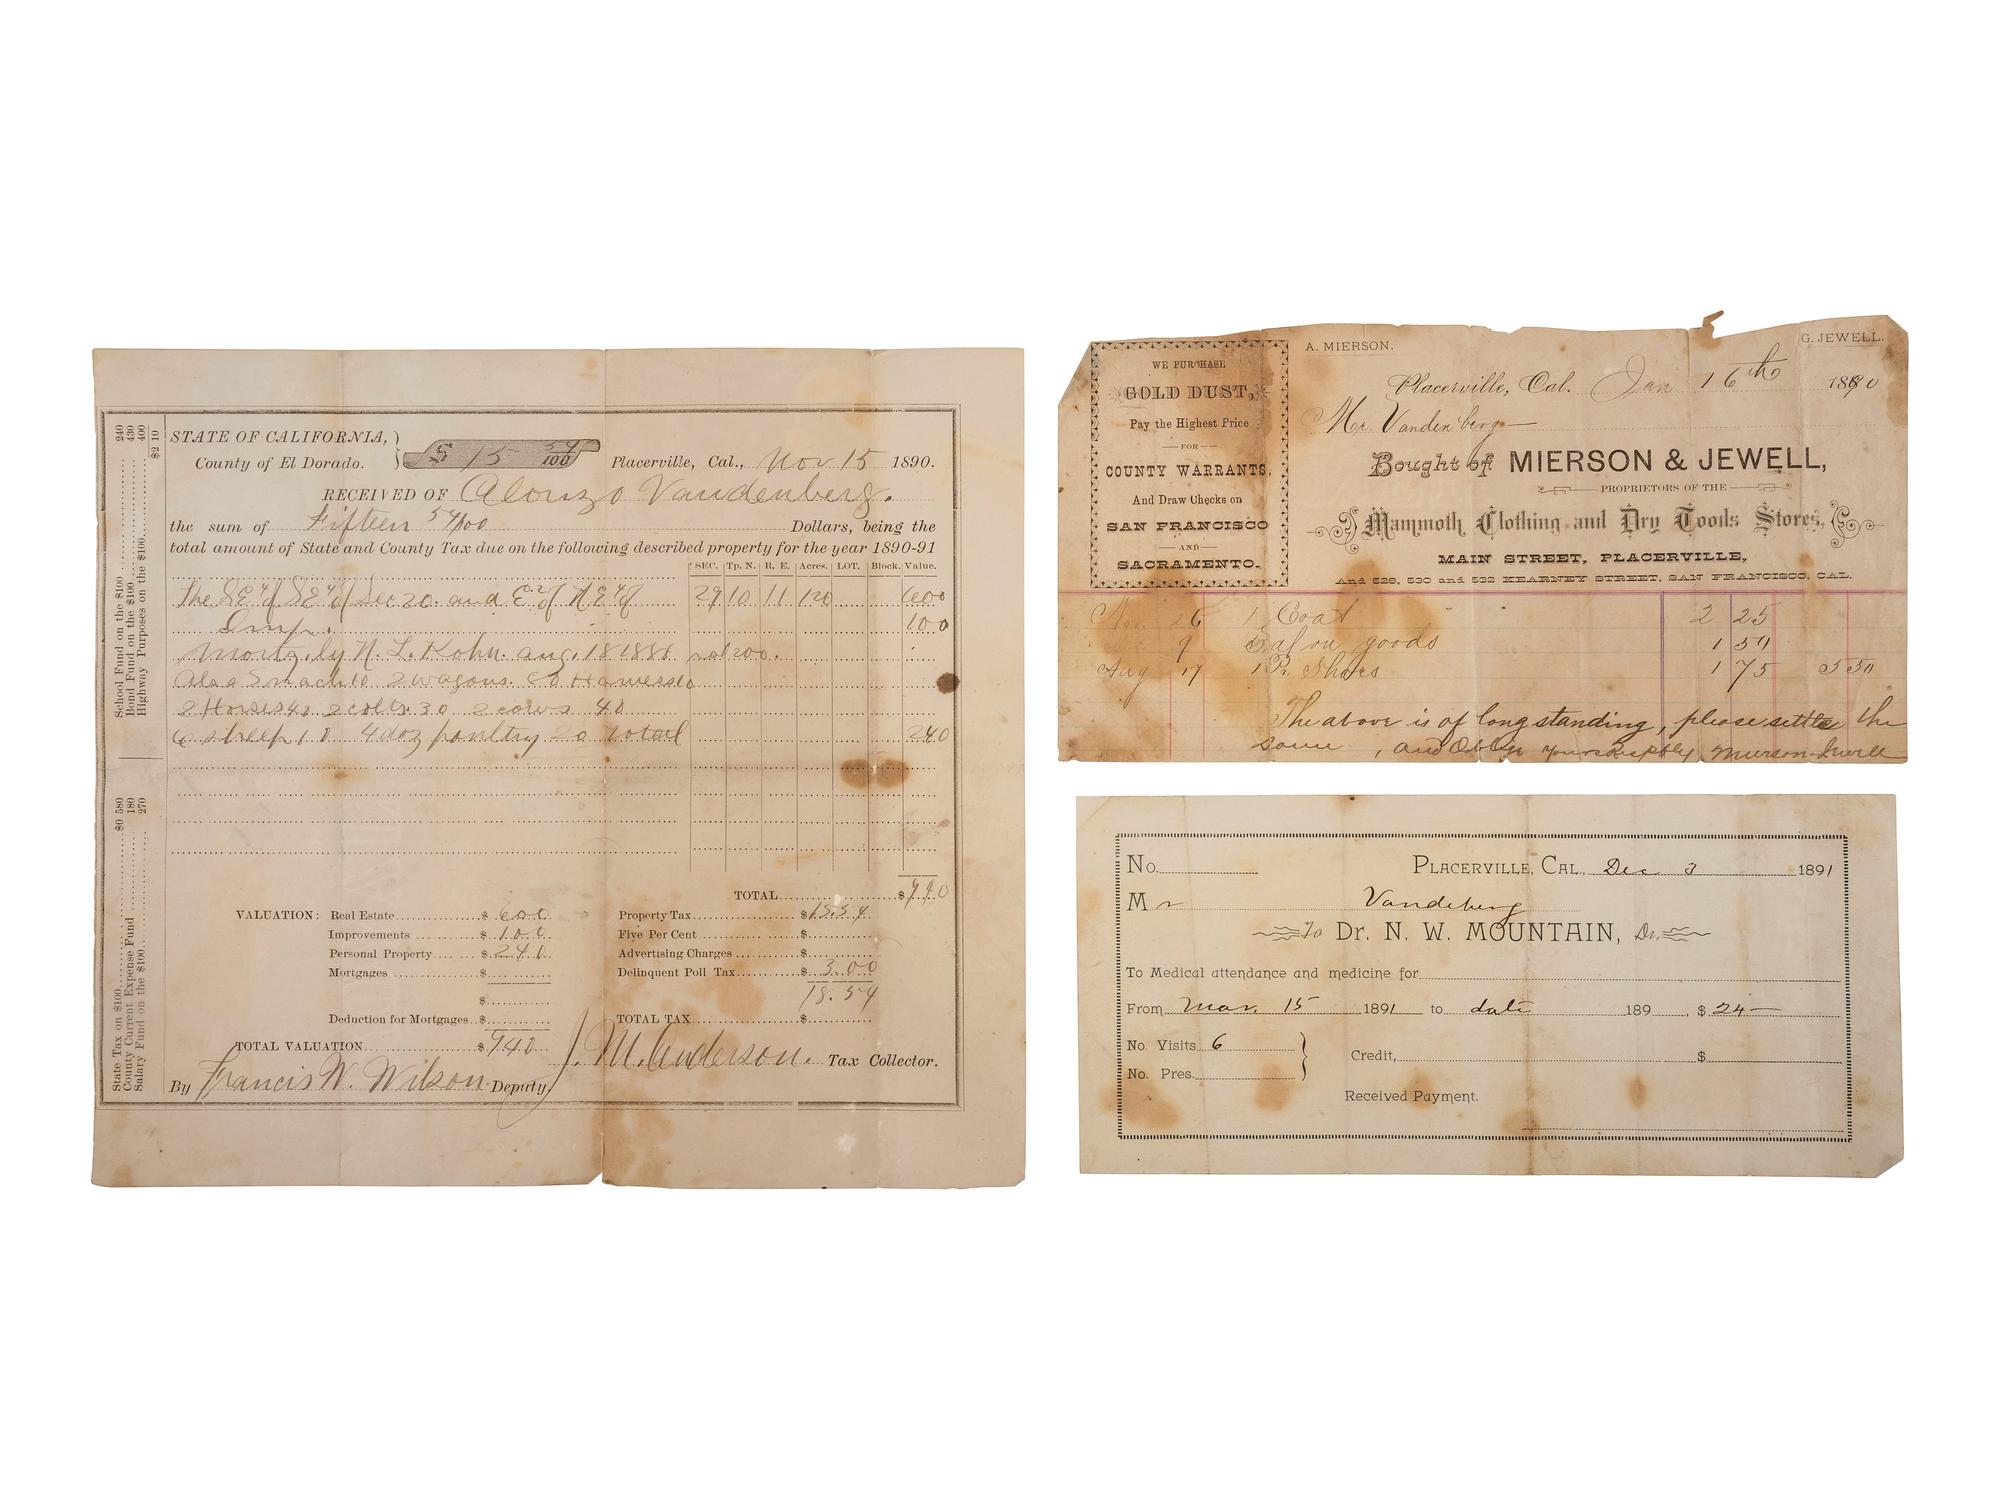 STATE OF CALIFORNIA,
County of El Dorado.
$ 15 54/100
Placerville, Cal., Nov 15 1890.
RECEIVED OF Alonzo Vandenberg.
the sum of Fifteen 54/100 Dollars, being the
total amount of State and County Tax due on the following described property for the year 1890-91
SEC. Tp. N. R. E. Acres. LOT. Block. Value.
The SE¼ of SE¼ of Sec 20. and E½ of NE¼ of 29 10 11 120 600
Imp. 100
Mortg. by N. L. Kohn. Aug. 18 1886 200.
Also 2 wagons. 80 Harness 10
2 Horses 40 2 colts 30 2 cows 40
6 sheep 10 4 doz poultry 20 total 240
TOTAL $940
VALUATION: Real Estate $ 600
Improvements $ 100
Personal Property $ 240
Mortgages $
$
Deduction for Mortgages $
TOTAL VALUATION $940
Property Tax $15.54
Five Per Cent $
Advertising Charges $
Delinquent Poll Tax $ 3.00
18.54
TOTAL TAX $
J. M. Anderson. Tax Collector.
By Francis W. Wilson Deputy
School Fund on the $100 240
Bond Fund on the $100 430
Highway Purposes on the $100 400
$2 10
State Tax on $100 $0 580
County Current Expense Fund 180
Salary Fund on the $100 270
A. MIERSON.
G. JEWELL.
WE PURCHASE
GOLD DUST,
Pay the Highest Price
FOR
COUNTY WARRANTS,
And Draw Checks on
SAN FRANCISCO
AND
SACRAMENTO.
Placerville, Cal. Jan 16th 1890
Mr. Vandenberg
Bought of MIERSON & JEWELL,
PROPRIETORS OF THE
Mammoth Clothing and Dry Goods Stores,
MAIN STREET, PLACERVILLE,
And 528, 530 and 532 KEARNEY STREET, SAN FRANCISCO, CAL.
Nov. 26 1 Coat 2 25
9 Bal on goods 1 50
Aug 17 1 Pr Shoes 1 75 5 50
The above is of long standing, please settle the
same, and Oblige yours Respctfly Mierson & Jewell
No.
PLACERVILLE, CAL., Dec 3 1891
Mr Vandeberg
To Dr. N. W. MOUNTAIN, Dr.
To Medical attendance and medicine for
From Mar. 15 1891 to date 189 , $ 24—
No. Visits 6
No. Pres.
Credit, $
Received Payment.